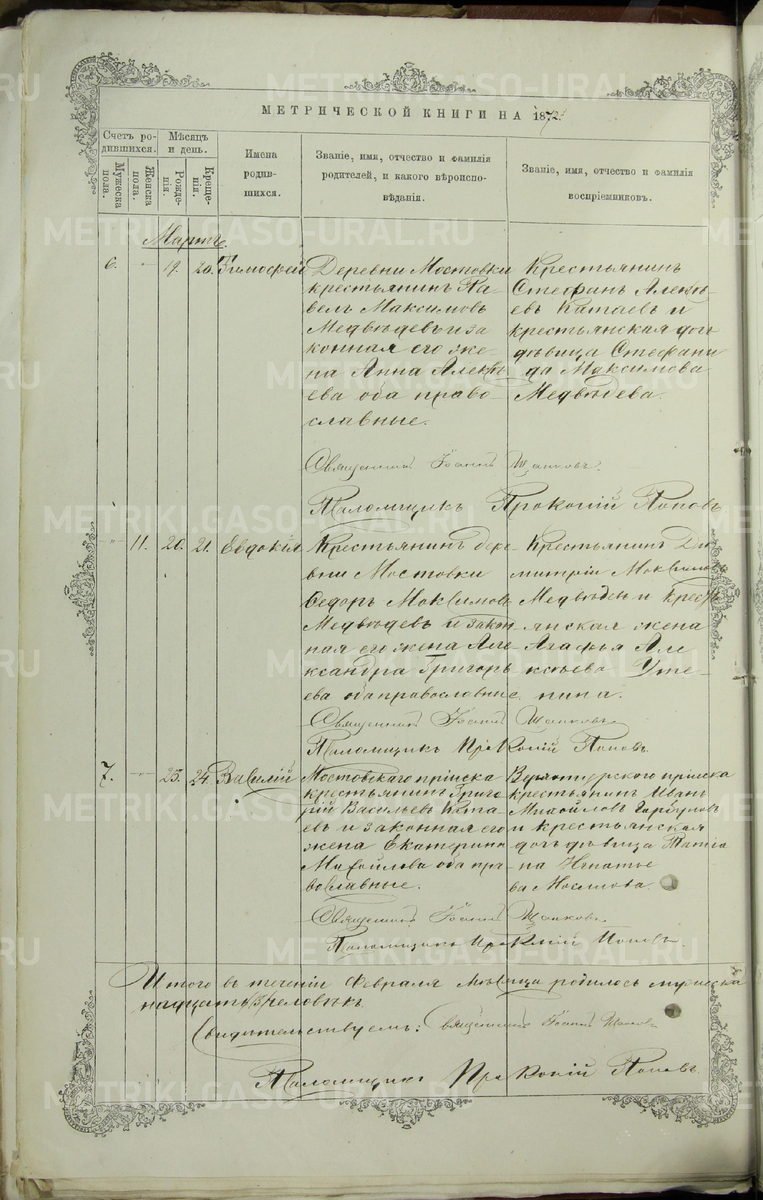 МЕТРИЧЕСКОЙ КНИГИ НА 187
Счетъ ро-
дившихся.
Мужеска
пола.
Женска
пола.
Мѣсяцъ
и день.
Рожде-
нія.
Креще-
нія.
Имена
родив-
шихся.
Званіе, имя, отчество и фамилія
родителей, и какого вѣроиспо-
вѣданія.
Званіе, имя, отчество и фамилія
воспріемниковъ.
Мартъ.
6. 19. 20. Тимофей
Деревни Мостовки
крестьянинъ Па-
велъ Максимовъ
Медвѣдевъ и за
конная его же-
на Анна Алексѣ
ева оба право-
славные.
Крестьянинъ
Стефанъ Алексѣ-
евъ Катаевъ и
крестьянская доч
дѣвица Стефани
да Максимова
Медвѣдева.
Священникъ Іоаннъ
Паломщикъ Прокопій Поповъ
11. 20. 21. Евдокія
Крестьянинъ дере-
вни Мостовки
Ѳедоръ Максимовъ
Медвѣдевъ и закон
ная его жена Але-
ксандра Григорь
ева оба православние.
Крестьянинъ Ди-
митрій Максимов
Медвѣдевъ и кресть
янская жена
Агафья Але
ксѣева
Священникъ Іоаннъ
Паломщикъ Прокопій Поповъ
7. 23. 24. Василій
Мостовскаго пріиска
крестьянинъ Григо-
рій Васильевъ Ката
евъ и законная его
жена Екатерина
Михайлова оба пра-
вославные.
пріиска
крестьянинъ Иванъ
Михайловъ Горбуновъ
и крестьянская
доч дѣвица Татіа
на Игнатье
ва
Священникъ Іоаннъ
Паломщикъ Прокопій Поповъ.
Итого въ теченіи Февраля мѣсяца родилось мужеска
человѣкъ
Свидѣтельствуемъ: Священникъ Іоаннъ
Паломщикъ Прокопій Поповъ
METRIKI.GASO-URAL.RU